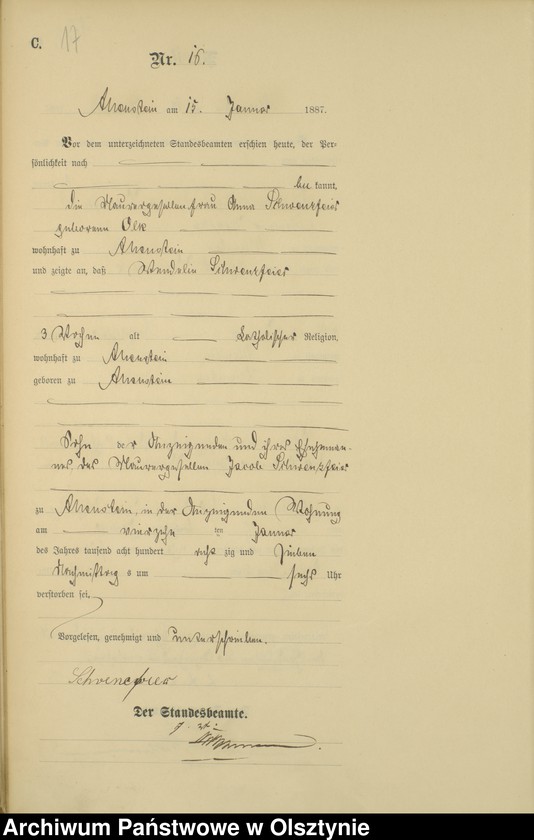 C. 17
Nr. 16.
Allenstein am 15. Januar 1887.
Vor dem unterzeichneten Standesbeamten erschien heute, der Per-
sönlichkeit nach
be kannt,
die Maurergesellenfrau Anna Schwenzfeier
geborene Olk
wohnhaft zu Allenstein
und zeigte an, daß Wendelin Schwenzfeier
3 Wochen alt katholischer Religion,
wohnhaft zu Allenstein
geboren zu Allenstein
Sohn der Anzeigenden und ihres Eheman-
nes, des Maurergesellen Jacob Schwenzfeier
zu Allenstein, in der Anzeigenden Wohnung
am vierzehn ten Januar
des Jahres tausend acht hundert acht zig und sieben
Nachmittag s um sechs Uhr
verstorben sei.
Vorgelesen, genehmigt und unterschrieben.
Der Standesbeamte.
Archiwum Państwowe w Olsztynie